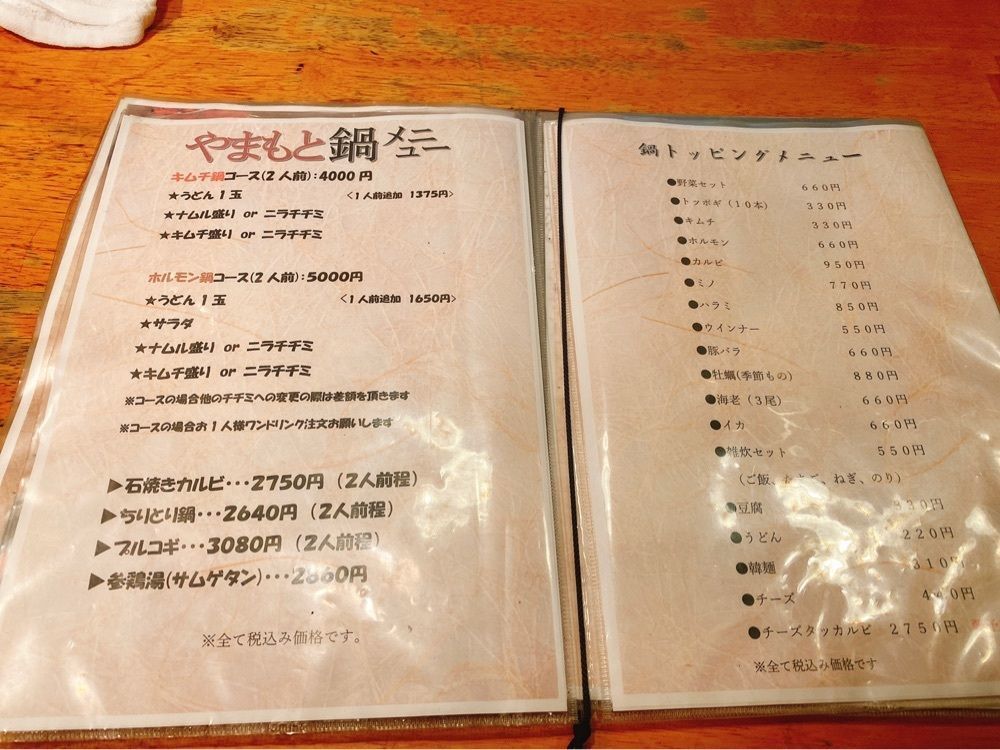 やまもと鍋メニュー
キムチ鍋コース(2人前):4000円
★うどん1玉 <1人前追加 1375円>
★ナムル盛り or ニラチヂミ
★キムチ盛り or ニラチヂミ
ホルモン鍋コース(2人前):5000円
★うどん1玉 <1人前追加 1650円>
★サラダ
★ナムル盛り or ニラチヂミ
★キムチ盛り or ニラチヂミ
※コースの場合他のチヂミへの変更の際は差額を頂きます
※コースの場合お1人様ワンドリンク注文お願いします
▶石焼きカルビ・・・2750円(2人前程)
▶ちりとり鍋・・・2640円(2人前程)
▶プルコギ・・・3080円(2人前程)
▶参鶏湯(サムゲタン)・・・2860円
※全て税込み価格です。
鍋トッピングメニュー
●野菜セット 660円
●トッポギ(10本) 330円
●キムチ 330円
●ホルモン 660円
●カルビ 950円
●ミノ 770円
●ハラミ 850円
●ウインナー 550円
●豚バラ 660円
●牡蠣(季節もの) 880円
●海老(3尾) 660円
●イカ 660円
●雑炊セット 550円
(ご飯、たまご、ねぎ、のり)
●豆腐 330円
●うどん 220円
●韓麺 310円
●チーズ 440円
●チーズタッカルビ 2750円
※全て税込み価格です